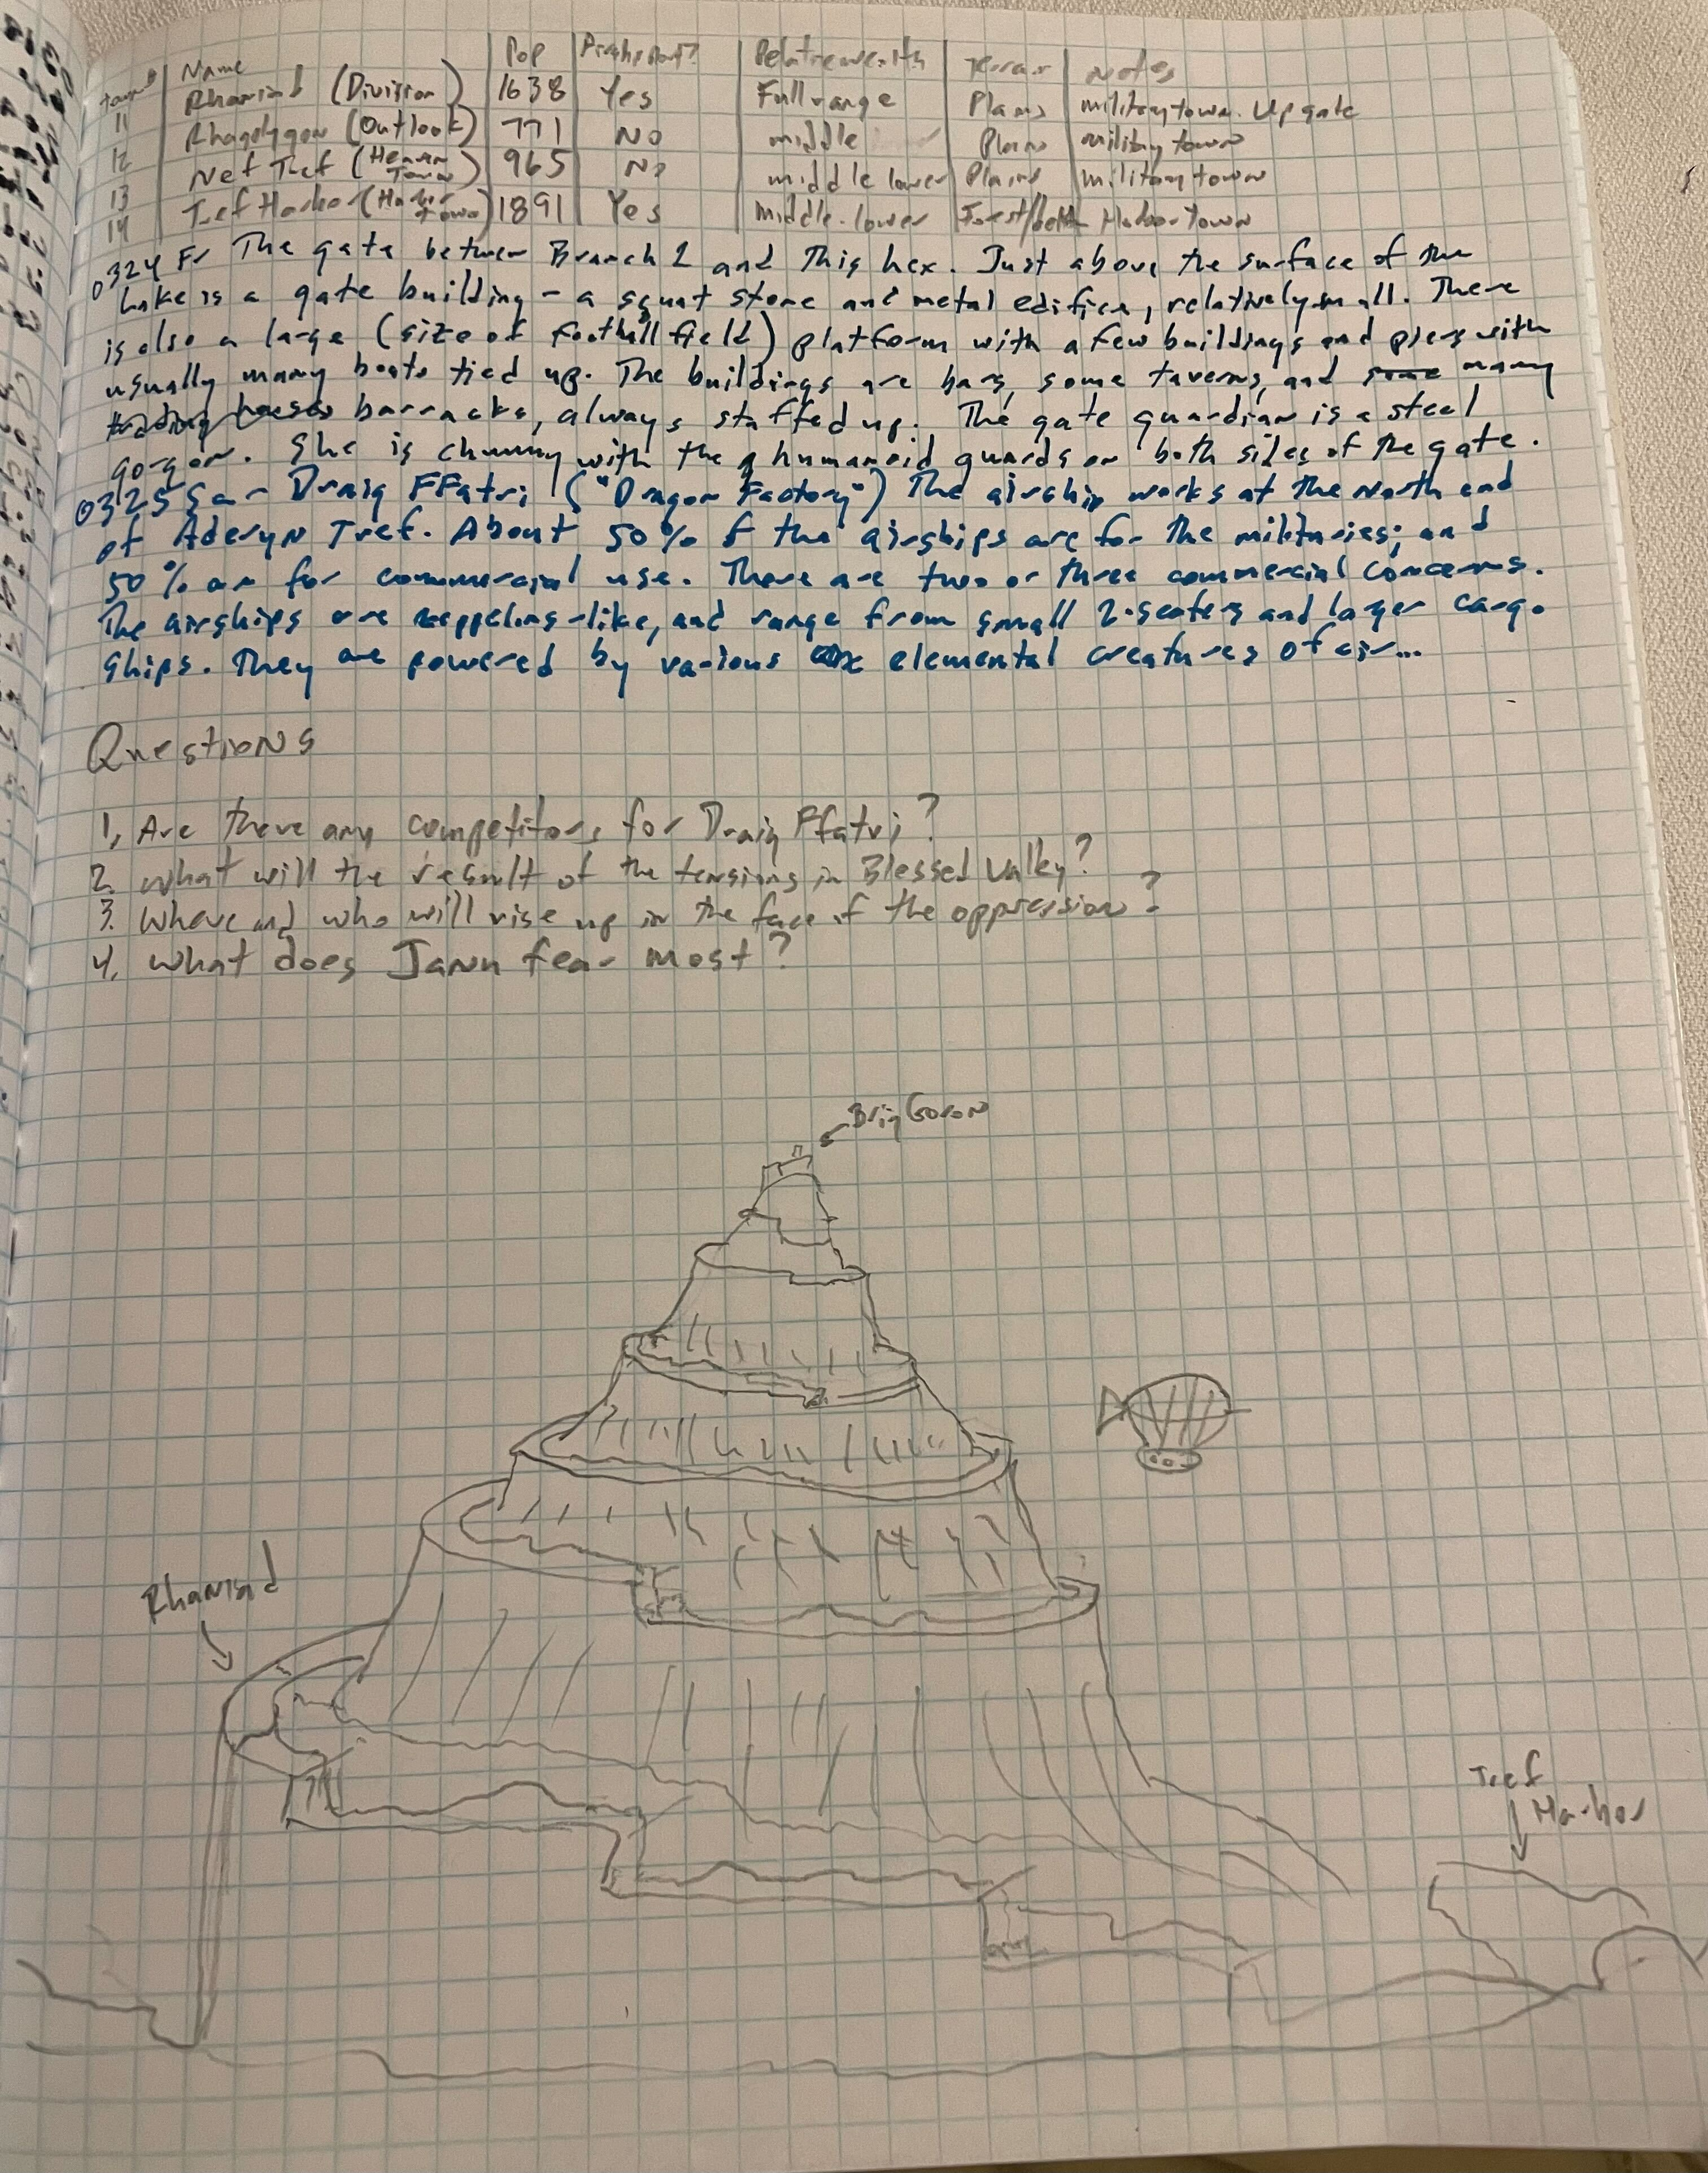 Town# | Name | Pop | | Relative wealth | Terrain | Notes
11 | Rhaniad (Division) | 1638 | Yes | Full range | Plains | military town. Up gate
12 | Rhagolygon (Outlook) | 771 | No | middle | Plains | military town
13 | Nef Tref (Heaven Town) | 965 | No | middle lower | Plains | military town
14 | Tref Harbor (Harbor Town) | 1891 | Yes | Middle-lower | Forest/ | Harbor town
0324 Fr The gate between Branch 2 and this hex. Just above the surface of the
Lake is a gate building - a squat stone and metal edifice, relatively small. There
is also a large (size of football field) platform with a few buildings and piers with
usually many boats tied up. The buildings are bars, some taverns, and some many
trading houses barracks, always staffed up. The gate guardian is a steel
gorgon. She is chummy with the humanoid guards on both sides of the gate.
0325 Sa - Draig FFatri ("Dragon Factory") The airship works at the North end
of Aderyn Tref. About 50% of the airships are for the militaries; and
50% are for commercial use. There are two or three commercial concerns.
The airships are zeppelins-like, and range from small 2-seaters and larger cargo
ships. They are powered by various elemental creatures of air...
Questions
1, Are there any competitors for Draig Ffatri?
2. What will the result of the tensions in Blessed Valley?
3. Where and who will rise up in the face of the oppression?
4, What does Jann fear most?
Brig Goron
Rhaniad
Tref
Harbor